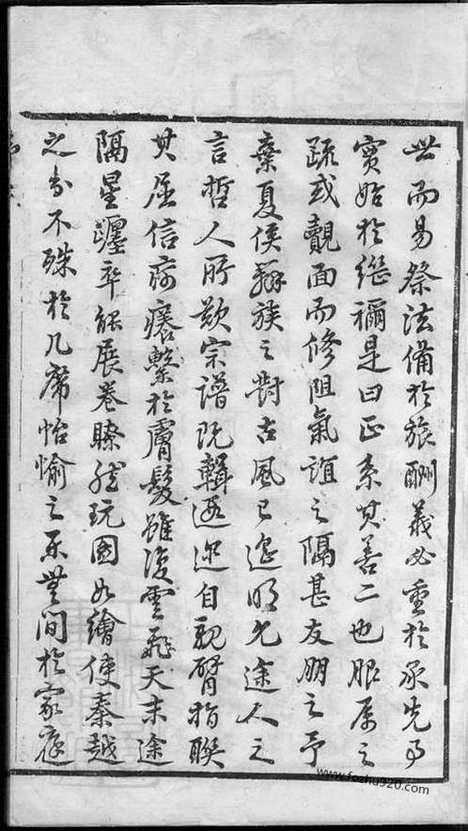 世而易祭法備於旅酬義必重於承先事
實始於繼禰是曰正系其善二也服属之
疏或覿面而修阻氣誼之隔甚友朋之予
桑夏侯辭族之對古風已遠明允途人之
言哲人所歎宗譜既輯遐邇自親臂指聯
其屈信疴癢繫於膚髮雖復雲飛天末途
隔星躔卒能展卷瞭然玩圖如繪使秦越
之分不殊於几席怡愉之系無間於家庭
www.fozhu920.com